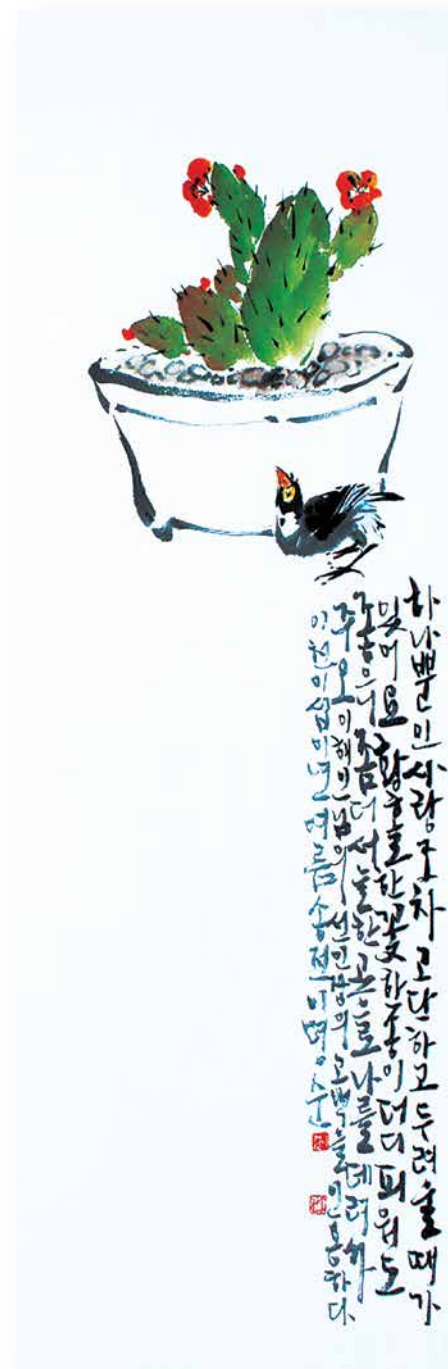 하나뿐인 사랑조차 고단하고 두려울 때가
있어요 황홀한 꽃 한 송이 더디 피워도
좋으니 좀 더 서늘한 곳으로 나를 데려가
주오 이해인님의 선인장의 고백을 인용하다
이천이십이년 여름 송전 이명순